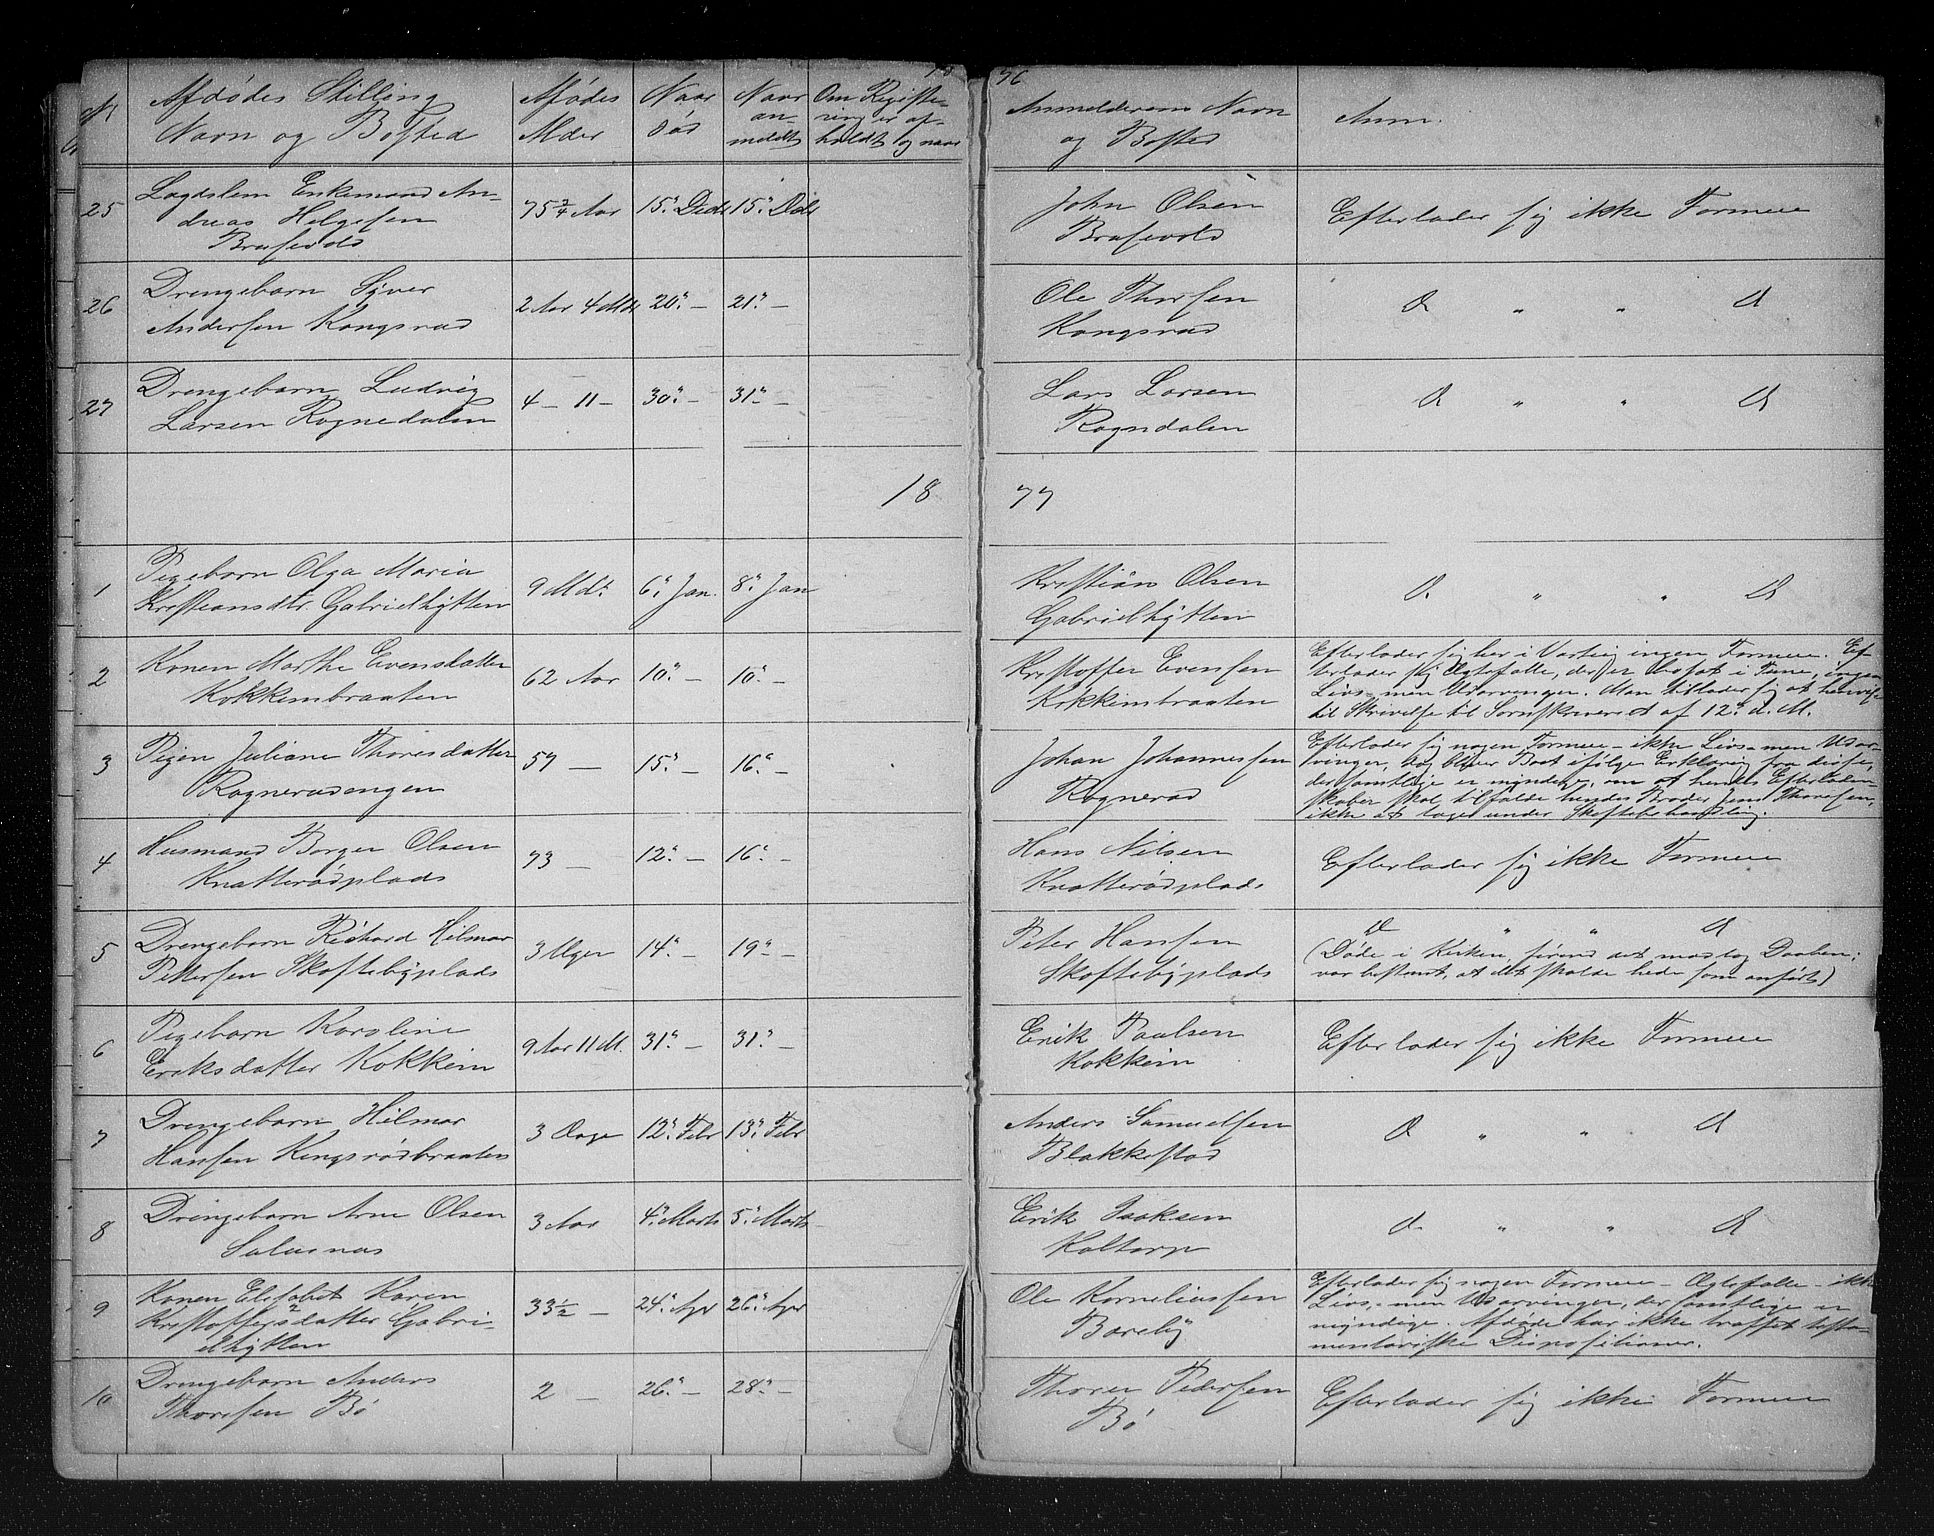 18 76
No Afdødes Stilling Navn og Bosted | Afdødes Alder | Naar død | Naar anmeldt | Om Registering er afholdt og naar | Anmelderens Navn og Bosted | Anm.
25 Lægdslem Enkemand An-
dreas Helgesen
Brusevold
75 3/4 Aar 15. Decbr 15. Decbr
John Olsen
Brusevold
Efterlader sig ikke Formue
26 Drengebarn Syver
Andersen Kongsrud
2 Aar 4 Mdr 20. – 21. –
Ole Thorsen
Kongsrud
D " " D
27 Drengebarn Ludvig
Larsen Rognedalen
4 – 11 – 30. – 31. –
Lars Larsen
Rogndalen
D " " D
18 77
1 Pigebarn Olga Maria
Kristiansdtr. Gabrielhytten
9 Md. 6. Jan. 8. Jan
Kristian Olsen
Gabrielhytten
D. " " D
2 Konen Marthe Evensdatter
Kokkimbraaten
62 Aar 10. – 10. –
Kristoffer Evensen
Kokkimbraaten
Efterlader sig her i Varteig ingen Formue. Ef-
terlader sig Ægtefælle, der er bosat i Tune, ingen
Livs- men Udarvinger. Man tillader sig at henvise
til Skrivelse til Sorenskriveren af 12. d. M.
3 Pigen Juliane Thoresdatter
Rognerudengen
57 – 15. – 16. –
Johan Johannessen
Rognerud
Efterlader sig nogen Formue – ikke Livs- men Udar-
vinger, dog bliver Boet ifølge Erklæring fra disse,
der samtlige er myndige, om at hendes Efterladen-
skaber skal tilfalde hendes Broder Jens Thoresen,
ikke at tage under Skiftebehandling.
4 Husmand Børger Olsen
Knatterødplads
73 – 12. – 16. –
Hans Nilsen
Knatterødplads
Efterlader sig ikke Formue
5 Drengebarn Richard Hilmar
Pettersen Skoftebyplads
3 Uger 14. – 19. –
Peter Hansen
Skoftebyplads
D " " D
(Døde i Kirken, førend det modtog Daaben;
var bestemt, at det skulde hede som anført)
6 Pigebarn Karoline
Eriksdatter Kokkim
9 Aar 11 M. 31. – 31. –
Erik Paulsen
Kokkim
Efterlader sig ikke Formue
7 Drengebarn Hilmar
Hansen Kingsrødbraaten
3 Dage 12. Febr 13. Febr
Anders Samuelsen
Blakkestad
D " " D
8 Drengebarn Arne Olsen
3 Aar 4. Marts 5. Marts
Erik Isaksen
Koltorp
D " " D
9 Konen Elisabet Karen
Kristoffersdatter Gabri-
elhytten
33 1/2 – 24. Apr 26. Apr
Ole Korneliussen
Boreby
Efterlader sig nogen Formue – Ægtefælle – ikke
Livs- men Udarvinger, der samtlige er
myndige. Afdøde har ikke truffet testa-
mentariske Dispositioner.
10 Drengebarn Anders
Thoresen Bø
2 – 26. – 28. –
Thorer Pedersen
Bø
Efterlader sig ikke Formue